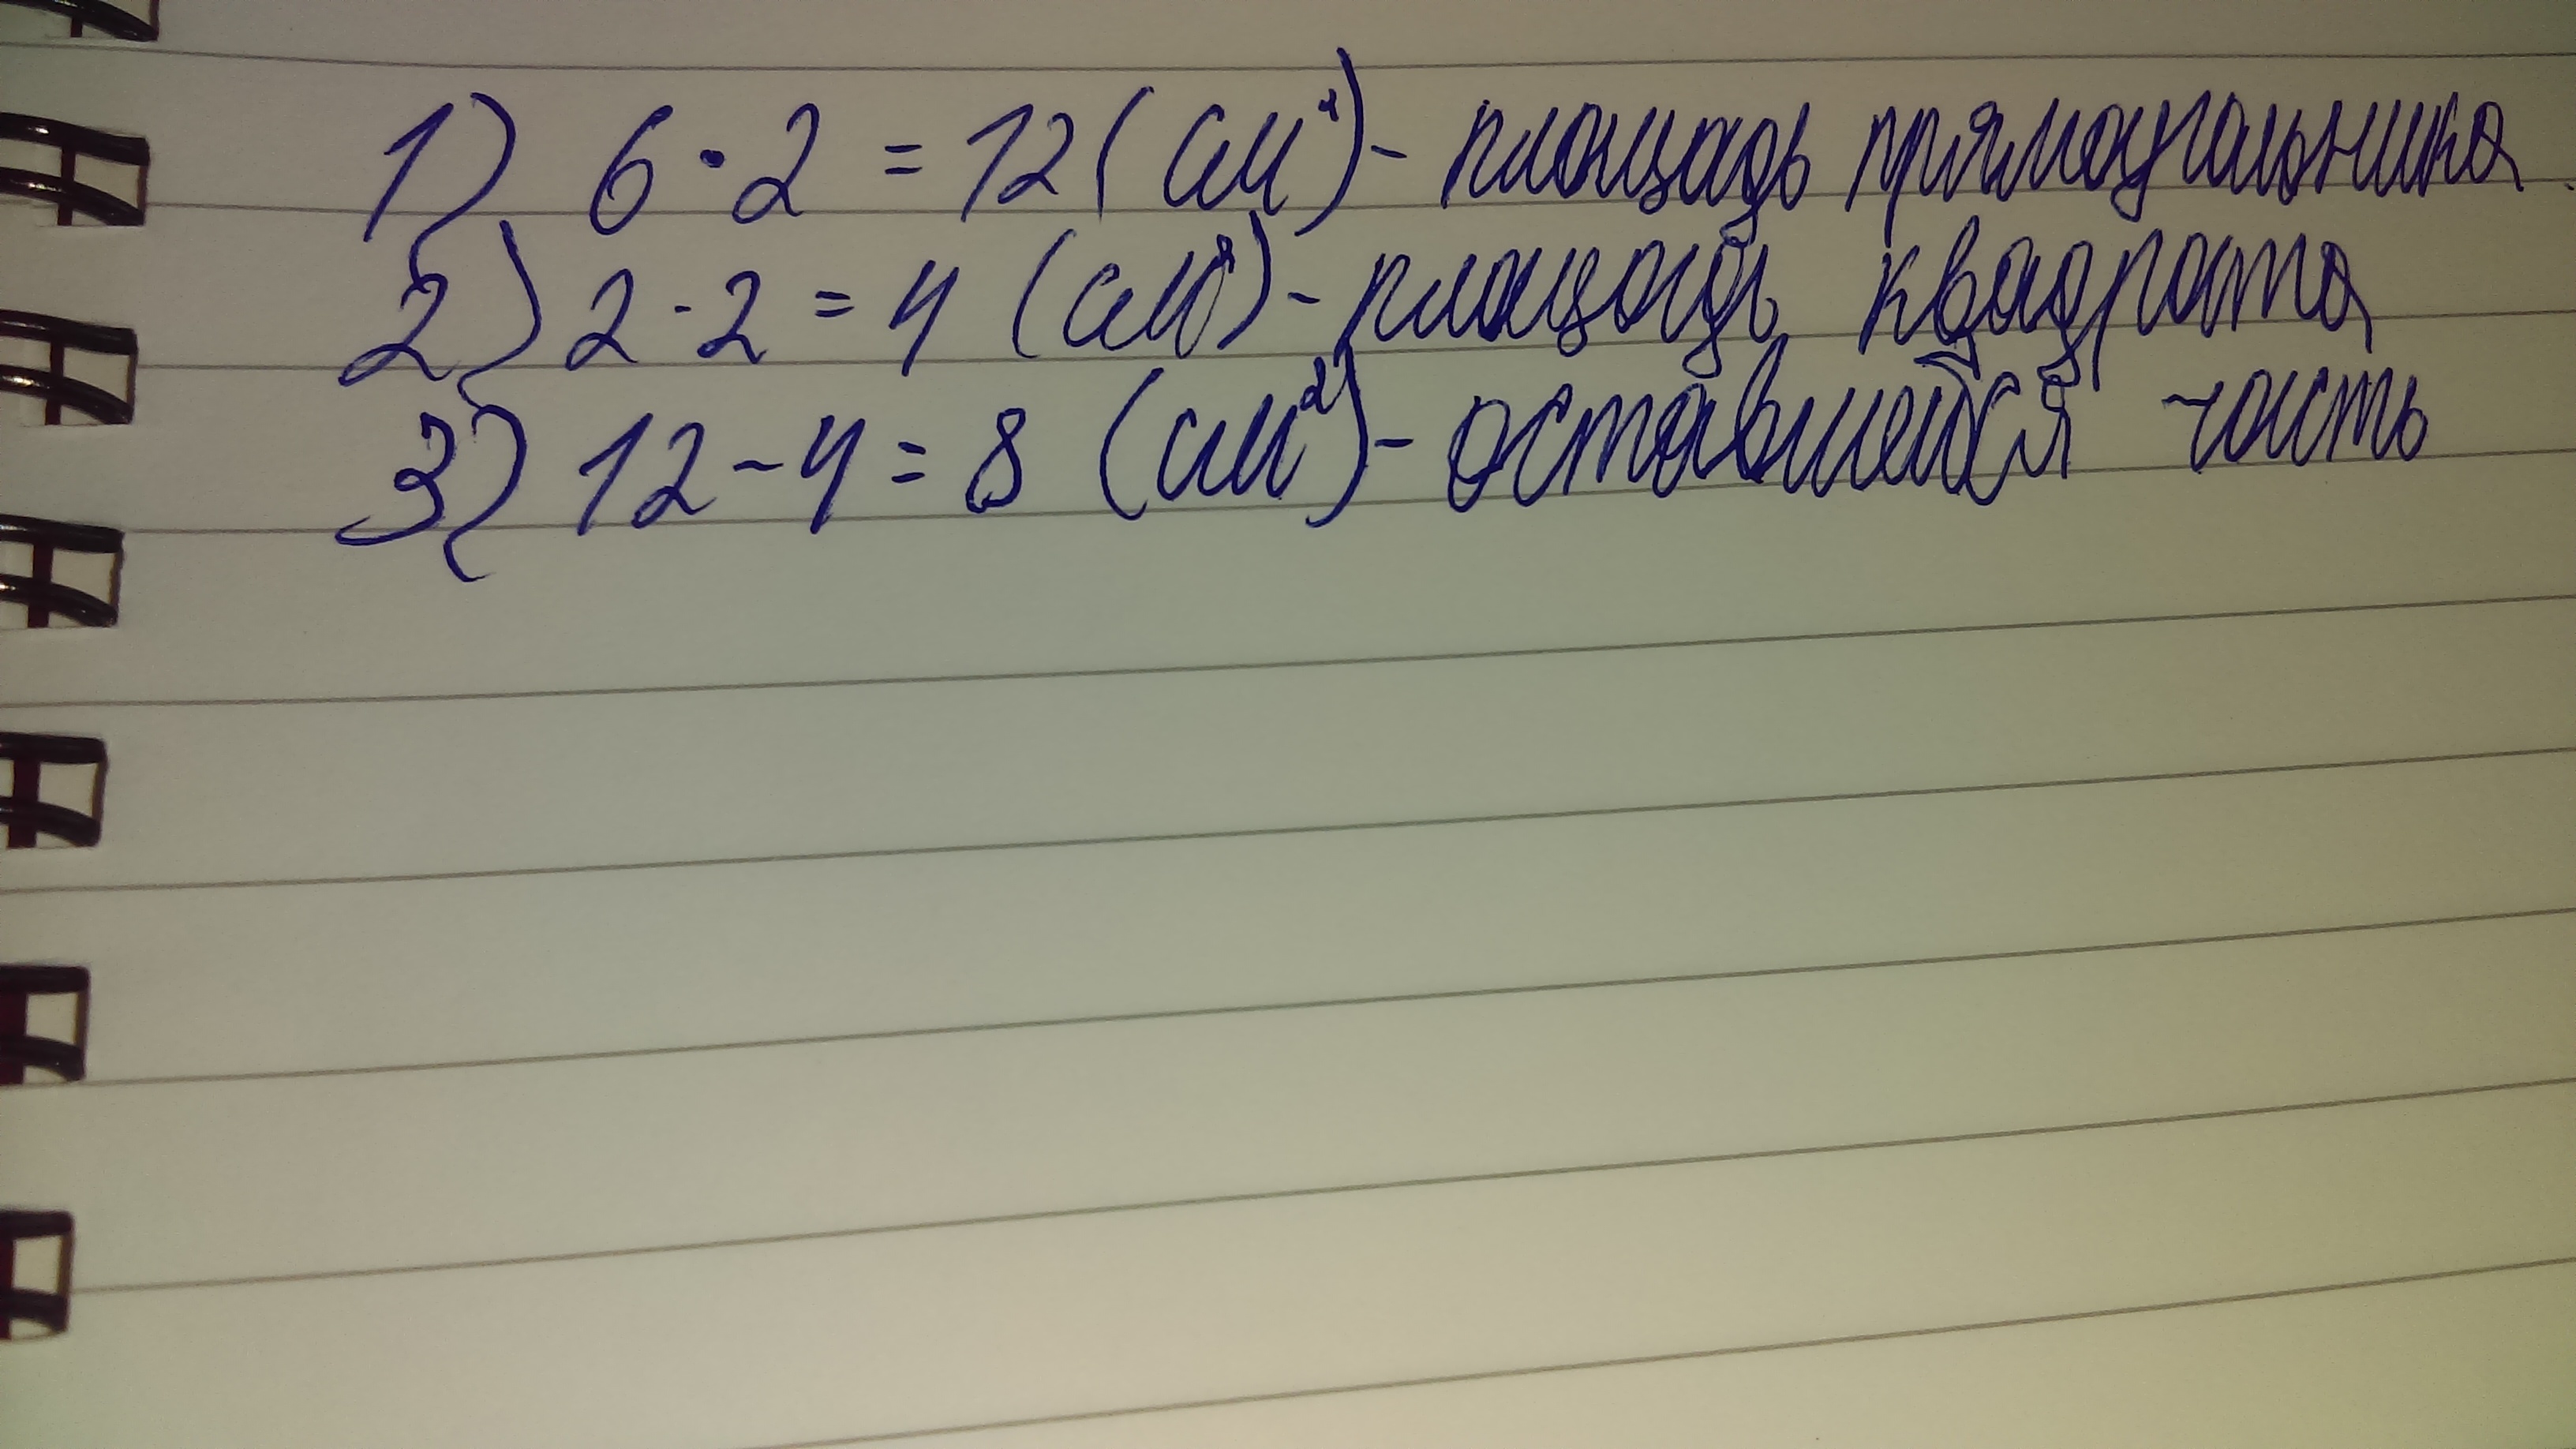 1) 6 · 2 = 12 (см²) - площадь прямоугольника
2) 2 · 2 = 4 (см²) - площадь квадрата
3) 12 - 4 = 8 (см²) - оставшейся часть